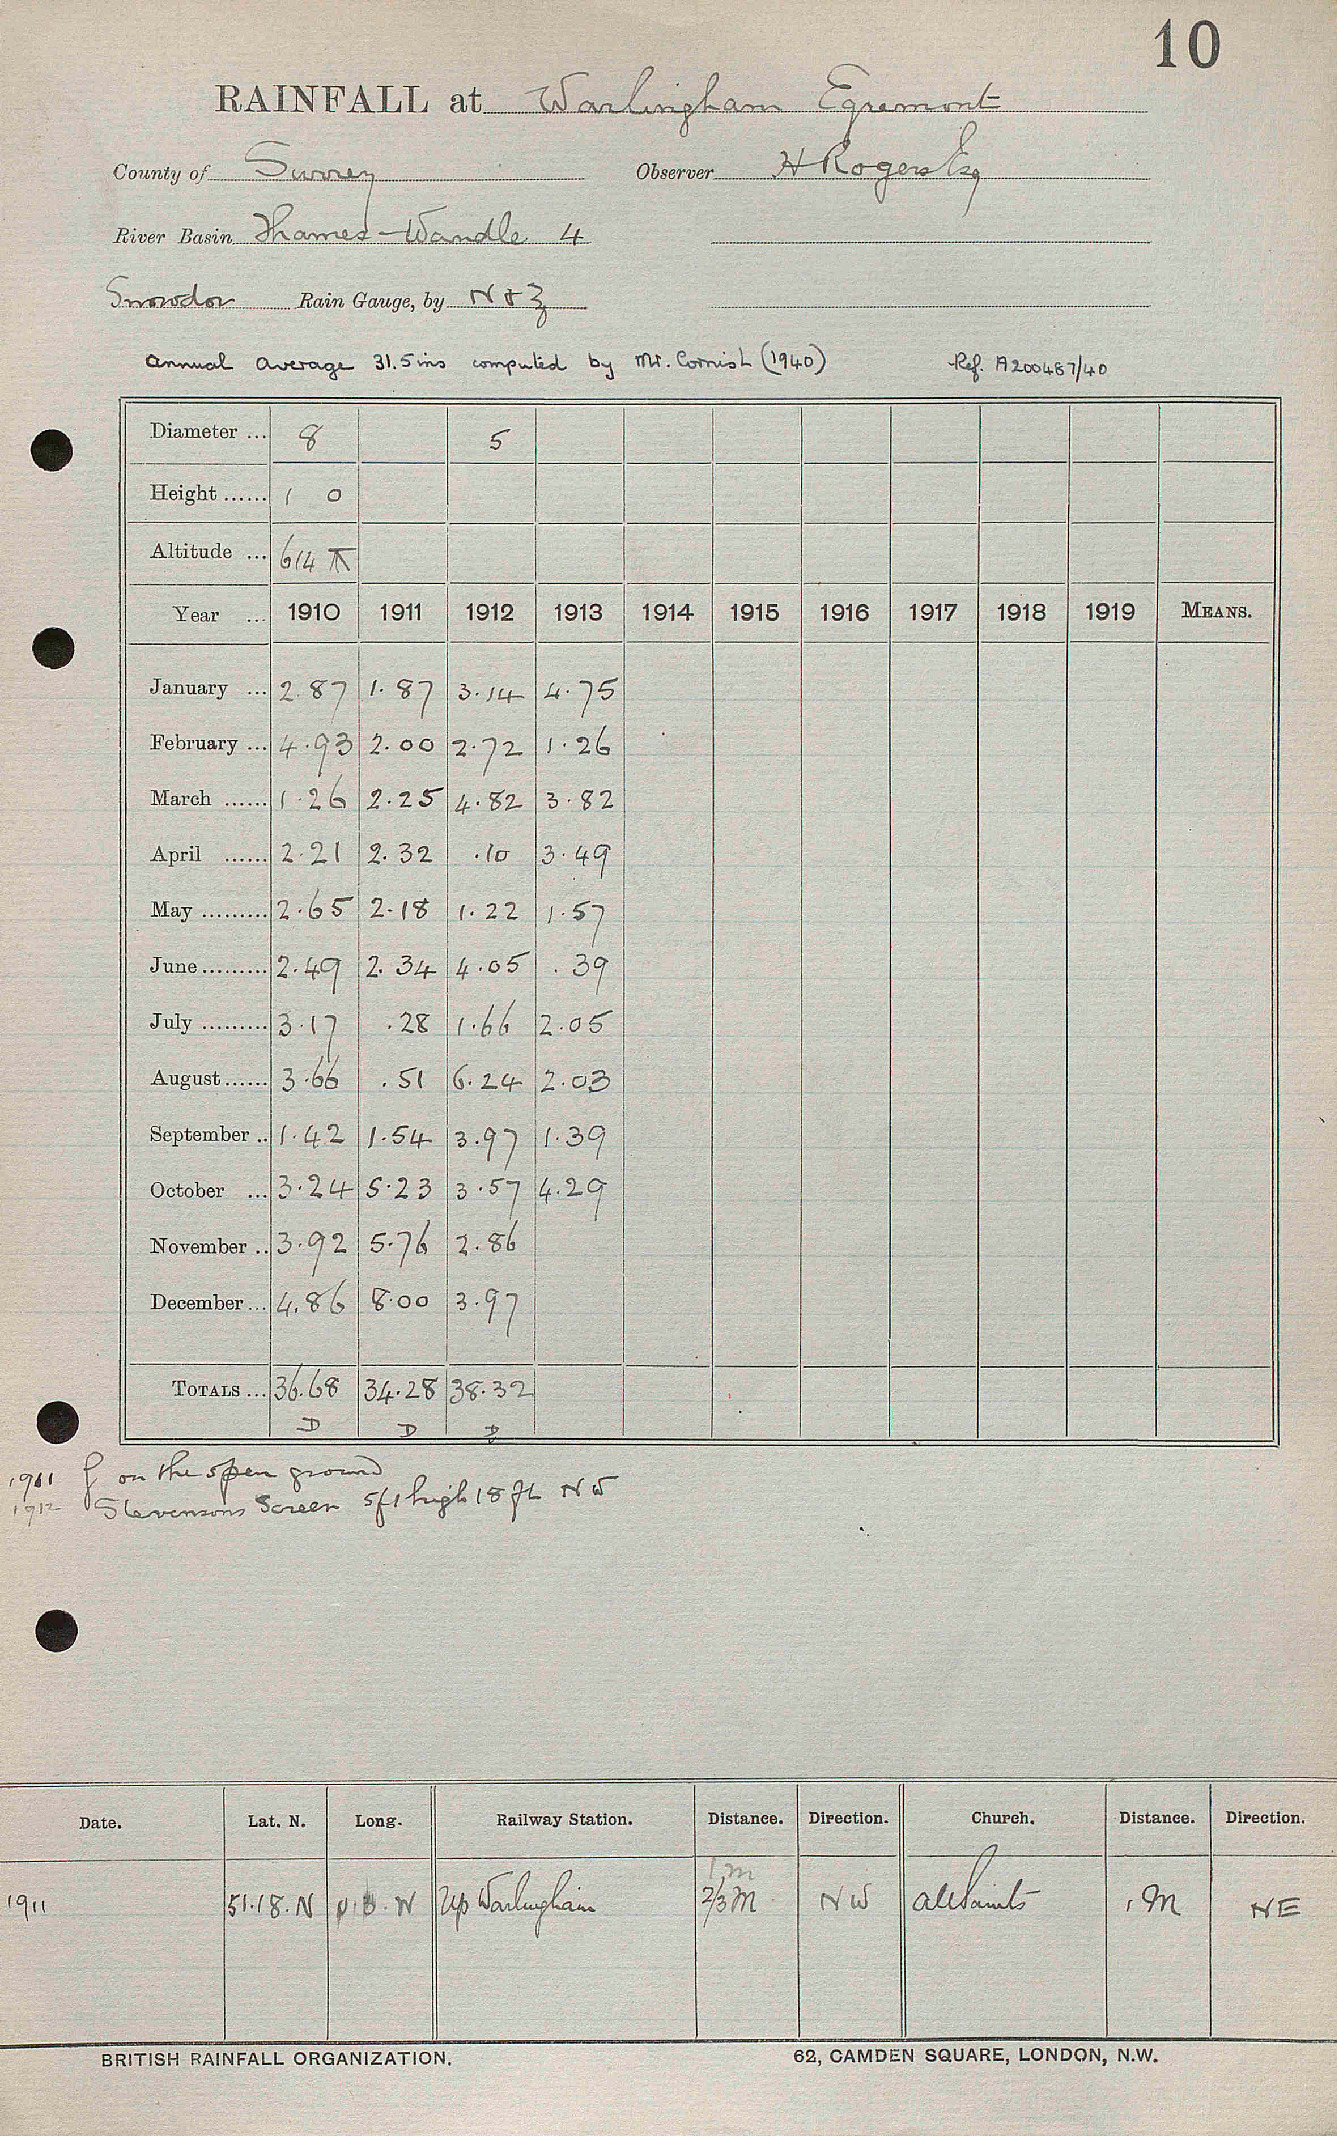 10
RAINFALL at Warlingham Egremont
County of Surrey Observer H Rogers Esq
River Basin Thames - Wandle 4
Snowdon Rain Gauge, by N & Z
Annual average 31.5 ins computed by Mr. Cornish (1940) Ref. A200487/40
Diameter ... 8 5
Height ...... 1 0
Altitude ... 614
Year ... 1910 1911 1912 1913 1914 1915 1916 1917 1918 1919 MEANS.
January ... 2.87 1.87 3.14 4.75
February ... 4.93 2.00 2.72 1.26
March ...... 1.26 2.25 4.82 3.82
April ...... 2.21 2.32 .10 3.49
May ......... 2.65 2.18 1.22 1.57
June ......... 2.49 2.34 4.05 .39
July ......... 3.17 .28 1.66 2.05
August ...... 3.66 .51 6.24 2.03
September .. 1.42 1.54 3.97 1.39
October ... 3.24 5.23 3.57 4.29
November .. 3.92 5.76 2.86
December ... 4.86 8.00 3.97
TOTALS ... 36.68 34.28 38.32
D D D
1911 on the open ground
1912 Stevensons Screen 5ft high 18 ft NW
Date. Lat. N. Long. Railway Station. Distance. Direction. Church. Distance. Direction.
1 m
1911 51.18.N Up Warlingham 2/3 M NW All Saints 1 M NE
BRITISH RAINFALL ORGANIZATION. 62, CAMDEN SQUARE, LONDON, N.W.